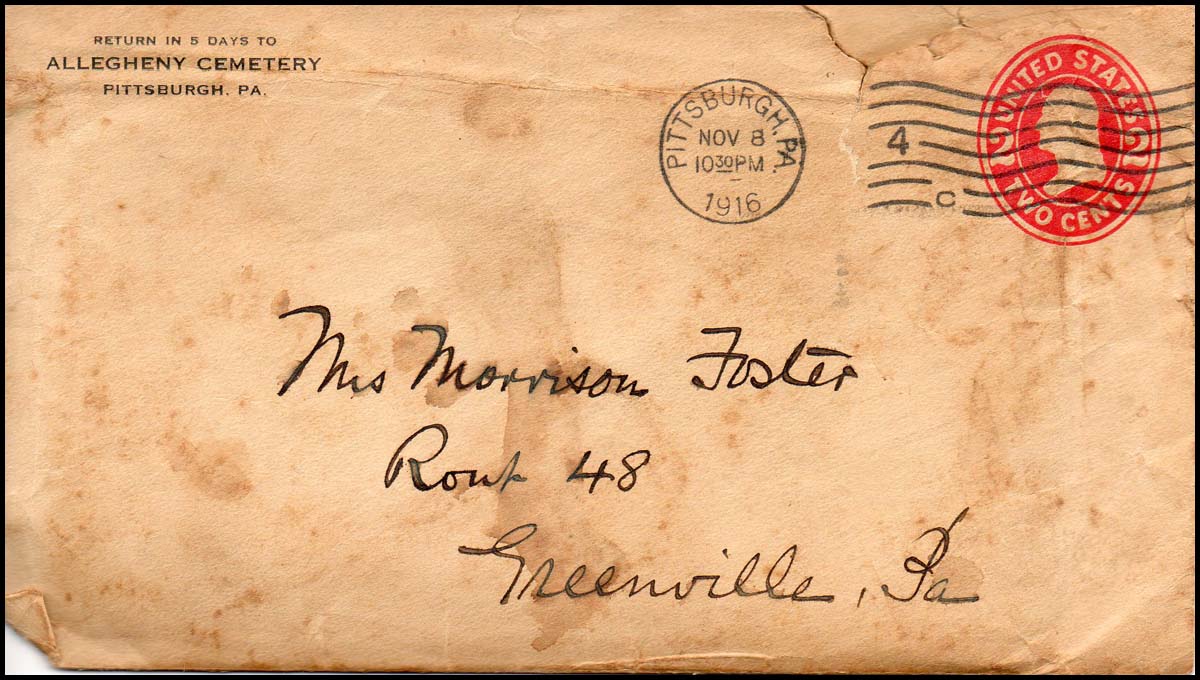 RETURN IN 5 DAYS TO
ALLEGHENY CEMETERY
PITTSBURGH, PA.
PITTSBURGH, PA.
NOV 8
10 30 PM
1916
4
C
UNITED STATES
2 2
TWO CENTS
Mrs Morrison Foster
Rout 48
Greenville, Pa